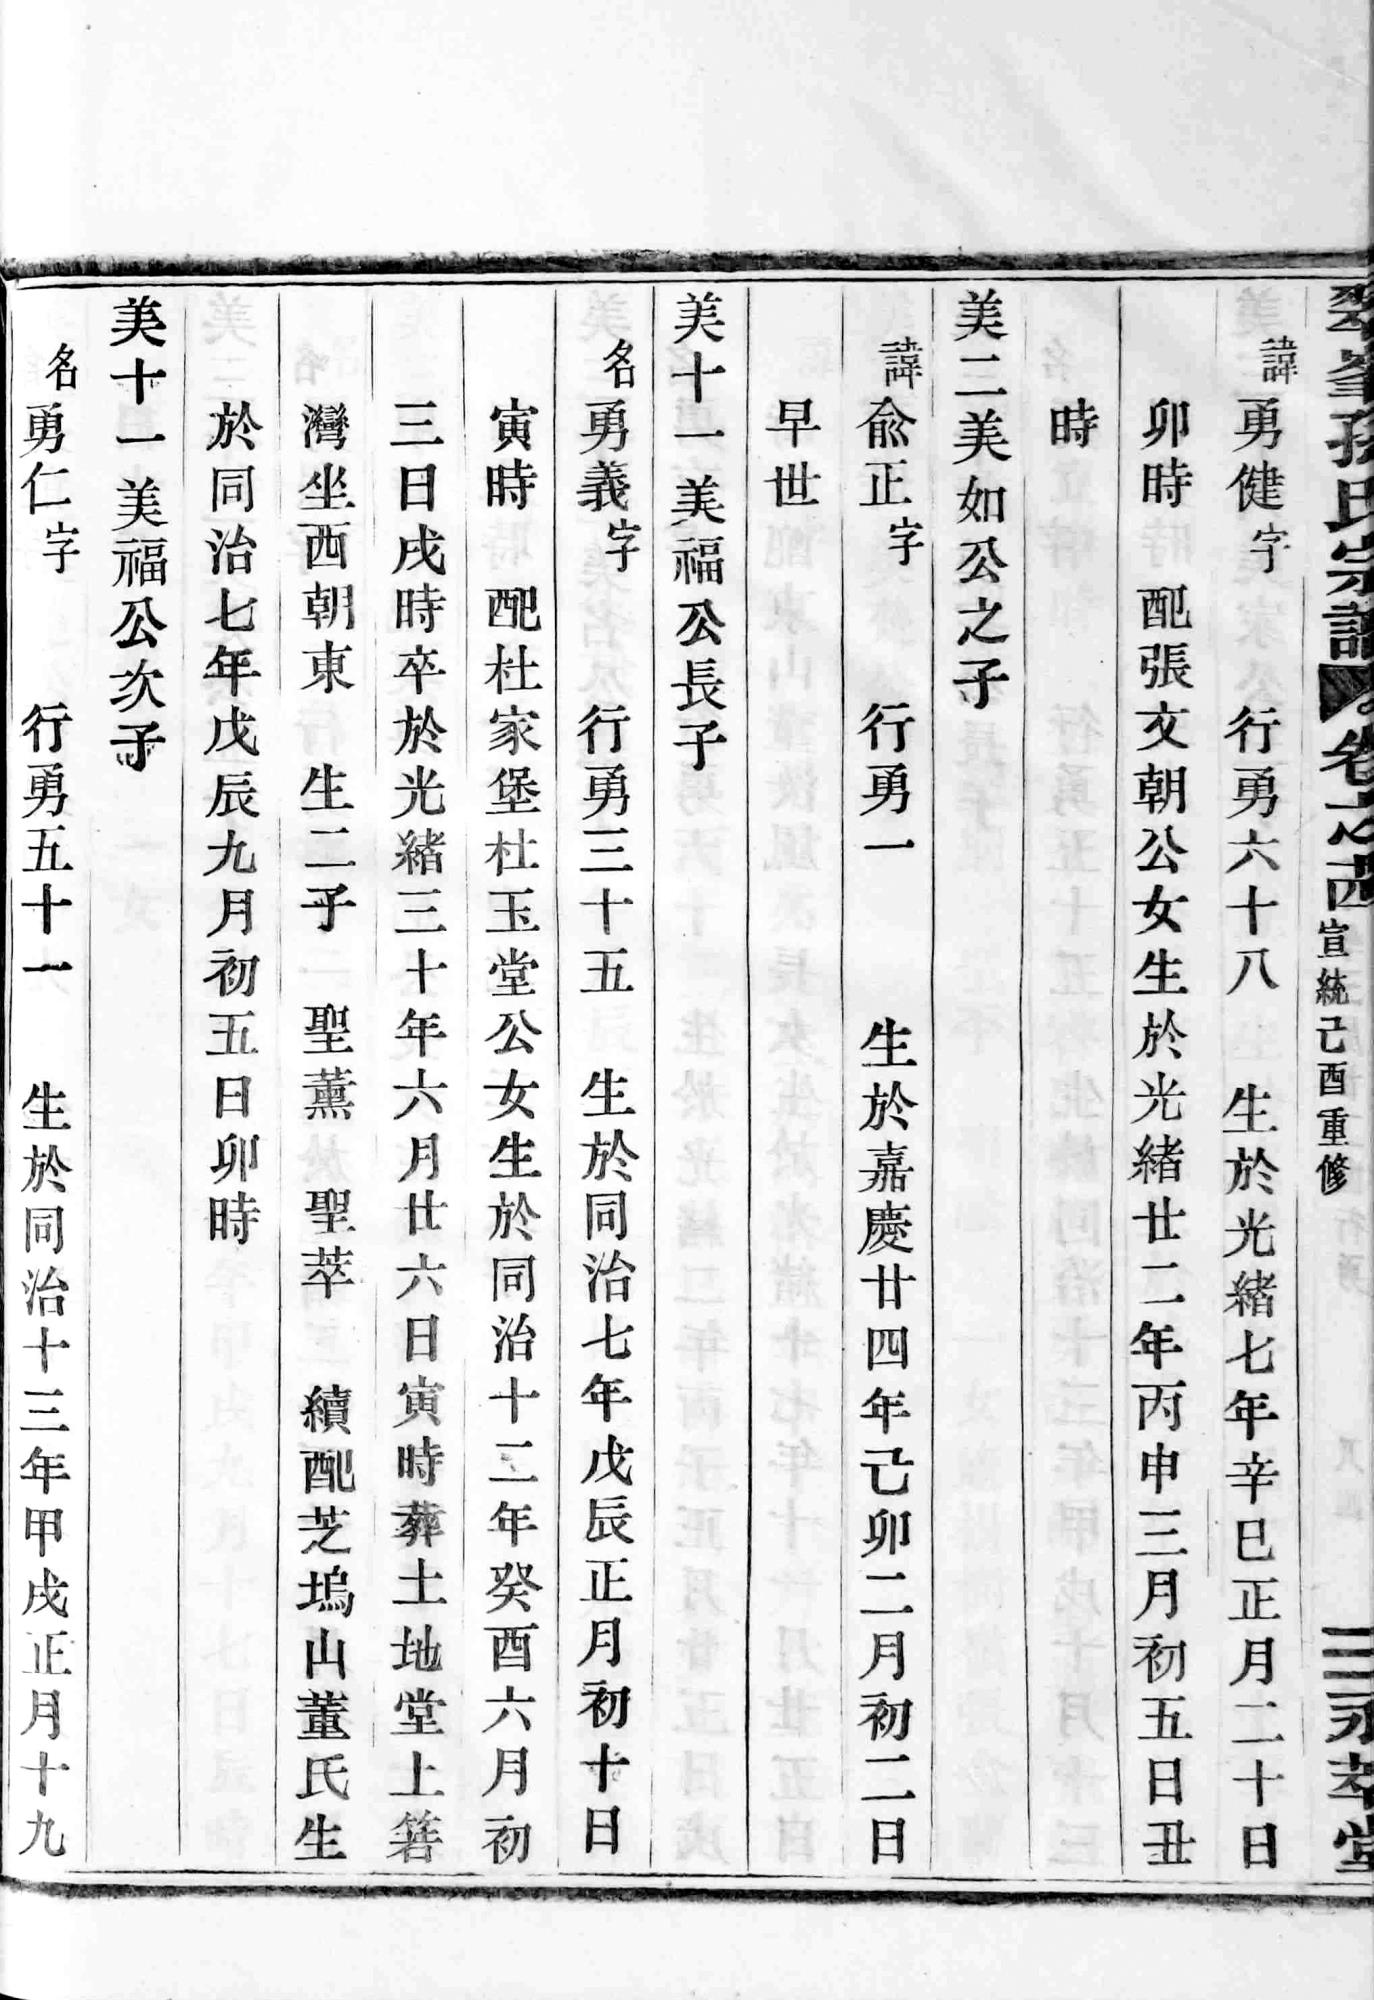 翠峯孫氏宗譜 卷之 宣統己酉重修 三 永萃堂
諱勇健字 行勇六十八 生於光緒七年辛巳正月二十日
卯時 配張文朝公女生於光緒廿二年丙申三月初五日丑
時
美二美如公之子
諱俞正字 行勇一 生於嘉慶廿四年己卯二月初二日
早世
美十一美福公長子
名勇義字 行勇三十五 生於同治七年戊辰正月初十日
寅時 配杜家堡杜玉堂公女生於同治十二年癸酉六月初
三日戌時卒於光緒三十年六月廿六日寅時葬土地堂上箬
灣坐西朝東 生二子 聖薰 聖萃 續配芝塢山董氏生
於同治七年戊辰九月初五日卯時
美十一美福公次子
名勇仁字 行勇五十一 生於同治十三年甲戌正月十九